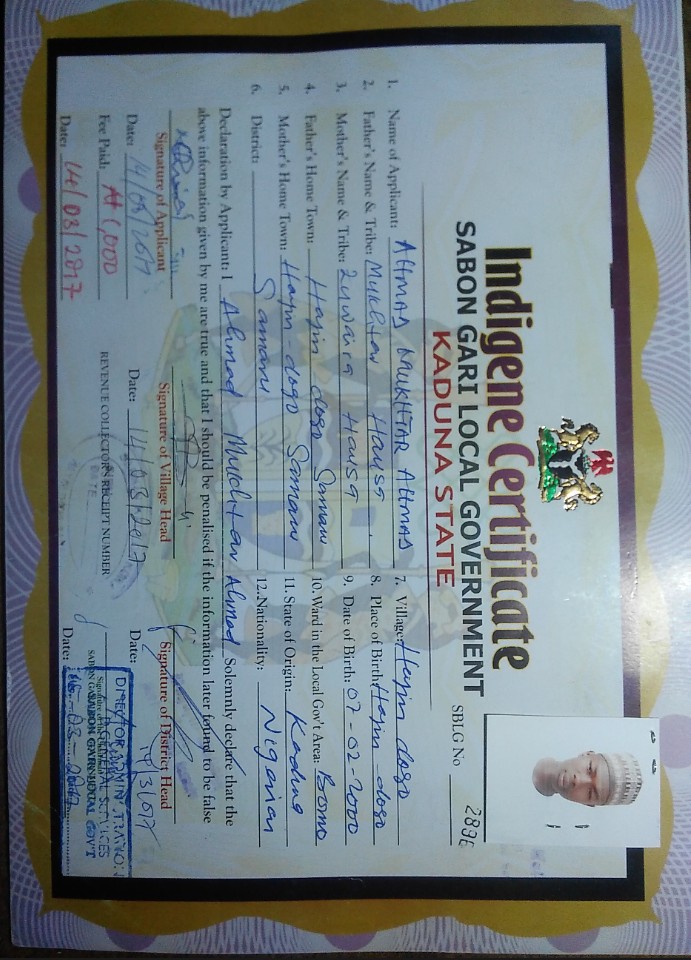 Indigene Certificate
SABON GARI LOCAL GOVERNMENT
KADUNA STATE
SBLG No 2896
1. Name of Applicant: AHMAD MUKHTAR AHMAD
2. Father's Name & Tribe: Mukhtar Hausa
3. Mother's Name & Tribe: Zuwaira Hausa
4. Father's Home Town: Hayin dogo Samaru
5. Mother's Home Town: Hayin-dogo Samaru
6. District: Samaru
7. Village: Hayin dogo
8. Place of Birth: Hayin dogo
9. Date of Birth: 07-02-2000
10. Ward in the Local Gov't Area: Bomo
11. State of Origin: Kaduna
12. Nationality: Nigerian
Declaration by Applicant: I Ahmad Mukhtar Ahmad Solemnly declare that the
above information given by me are true and that I should be penalised if the information later found to be false
Signature of Applicant
Signature of Village Head
Signature of District Head
Date: 14/03/2017
Date: 14/03/2017
Date: 14/3/017
Fee Paid: ₦1,000
REVENUE COLLECTOR'S RECEIPT NUMBER
Date: 14/03/2017
DIRECTOR ADMIN
GENERAL SERVICES
SABON GARI LOCAL GOVT
Date: